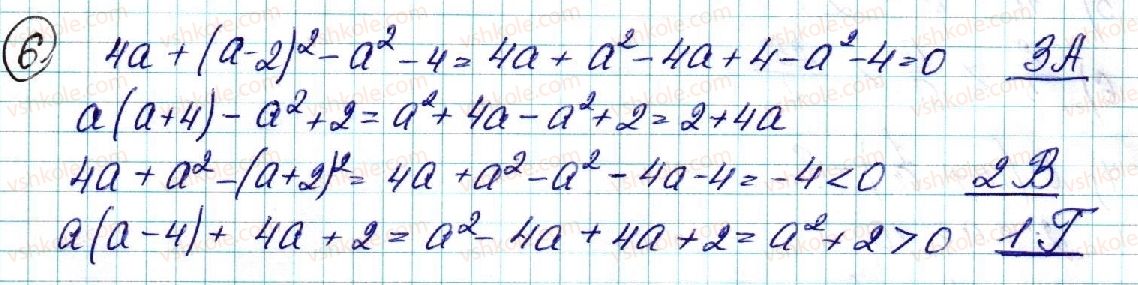 6) 4a + (a-2)² - a² - 4 = 4a + a² - 4a + 4 - a² - 4 = 0 3А
a(a+4) - a² + 2 = a² + 4a - a² + 2 = 2 + 4a
4a + a² - (a+2)² = 4a + a² - a² - 4a - 4 = -4 < 0 2В
a(a-4) + 4a + 2 = a² - 4a + 4a + 2 = a² + 2 > 0 1Г